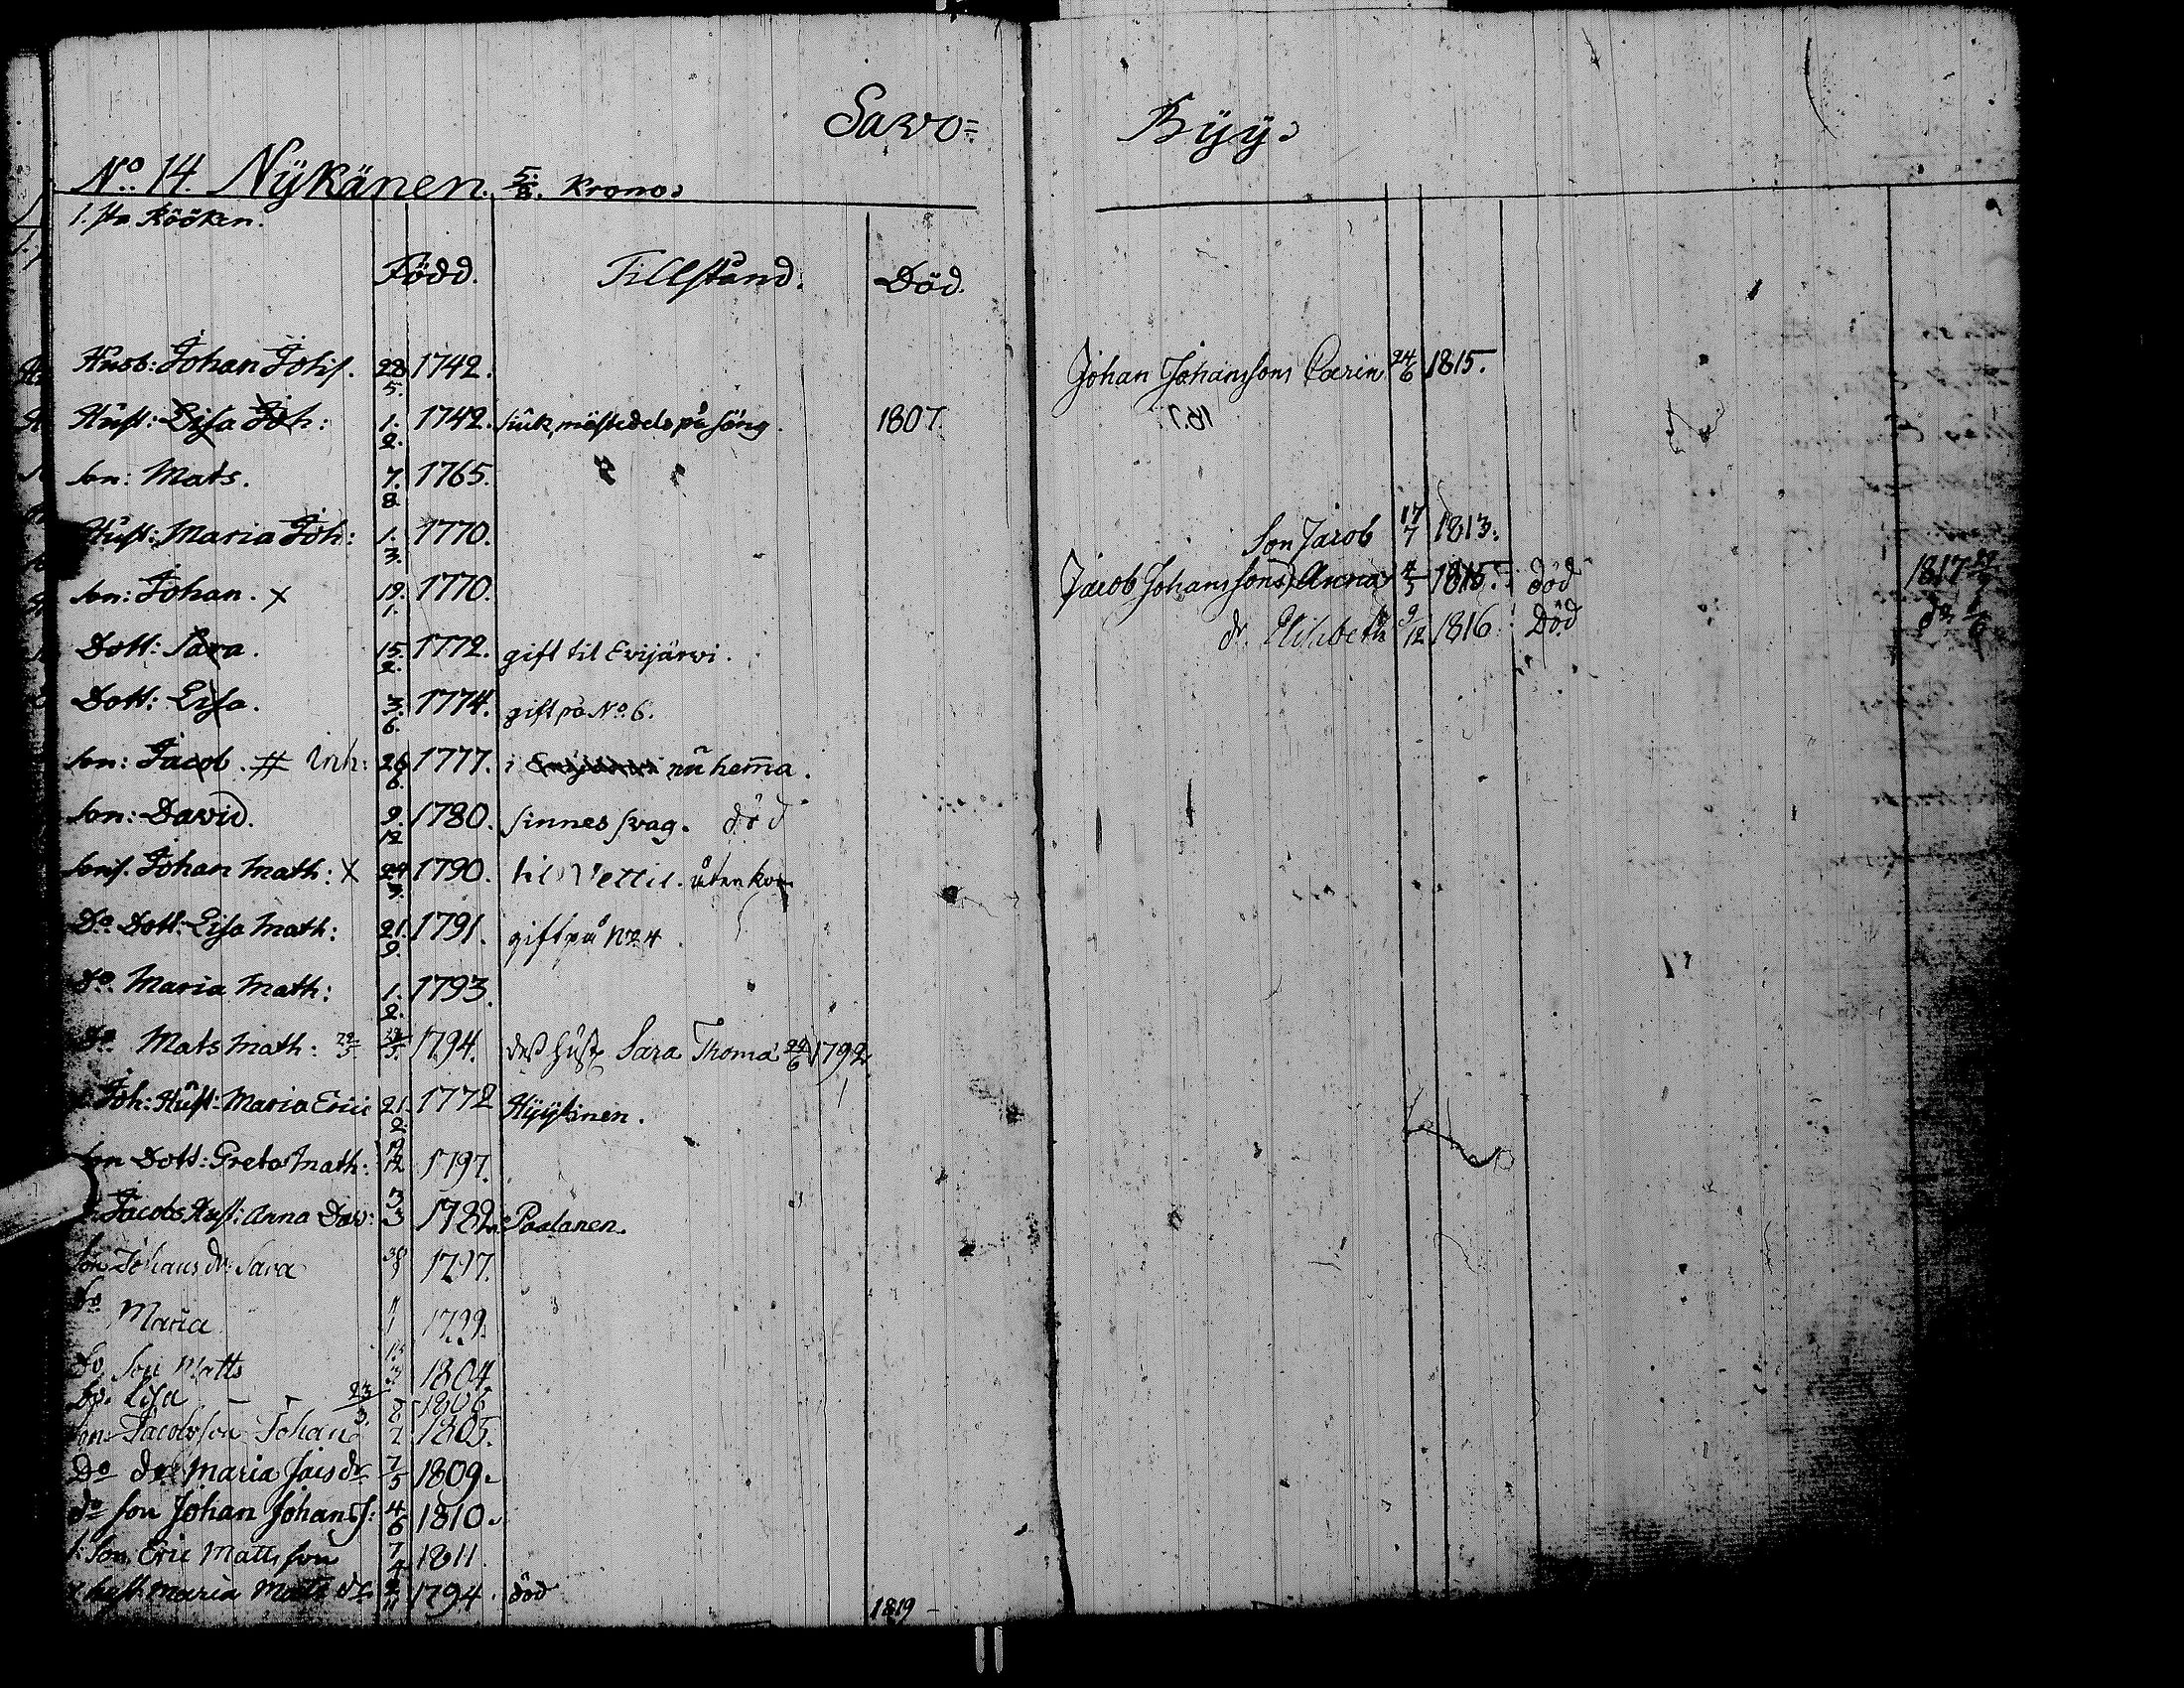 Savo=
No. 14. Nÿkänen. 5/8. Krono.
1. sta Rööken.
Född. Tillstånd. Död.
Husb: Johan Johs. 28/5. 1742.
Hust: Lisa Joh: 1./2. 1742. siuk, mästedels på säng. 1807.
Son: Mats. 7./8. 1765.
Hust: Maria Joh: 1./3. 1770.
Son: Johan. x 19./1. 1770.
Dott: Sara. 15./2. 1772. gift til Evijärvi.
Dott: Lisa. 3./6. 1774. gift på No. 6.
Son: Jacob. # Inh: 26/6. 1777. i nu hema.
Son: David. 9./12 1780. sinnes svag. död
Sons. Johan Math: x 24/3. 1790. til Vettil. utan
Do. Dott: Lisa Math: 21./9. 1791. gift på No 4
Do. Maria Math: 1./2. 1793.
Do. Mats Math: 1794. dess hust Sara Thoma 24/6 1792.
Joh: Hust: Maria Erici 21./2. 1772 Hyytinen.
Son Dott: Greta Math: 12 1797.
Jacobs Hust: Anna Dav: 3/3 1782. Paalanen.
Son Johans dr: Sara 30/1 1797.
Do Maria 11/1 1799.
Do. Son Matts 3 1804.
Do. Lisa 23/3. 1806
Son Jacobsson Johan 1805.
Do dr Maria Jacsdr 7/5 1809.
do son Johan Johans: 4/6 1810.
Son Eric Mattsson 7/4 1811.
hust. Maria Mattsdr 1794. död 1819 -
Byy.
Johan Johanssons Carin 24/6 1815.
Son Jacob 17/7 1813.
Jacob Johanssons Anna 4/5 1815. död 1817
dr. Elisabeth 9/12 1816. Död